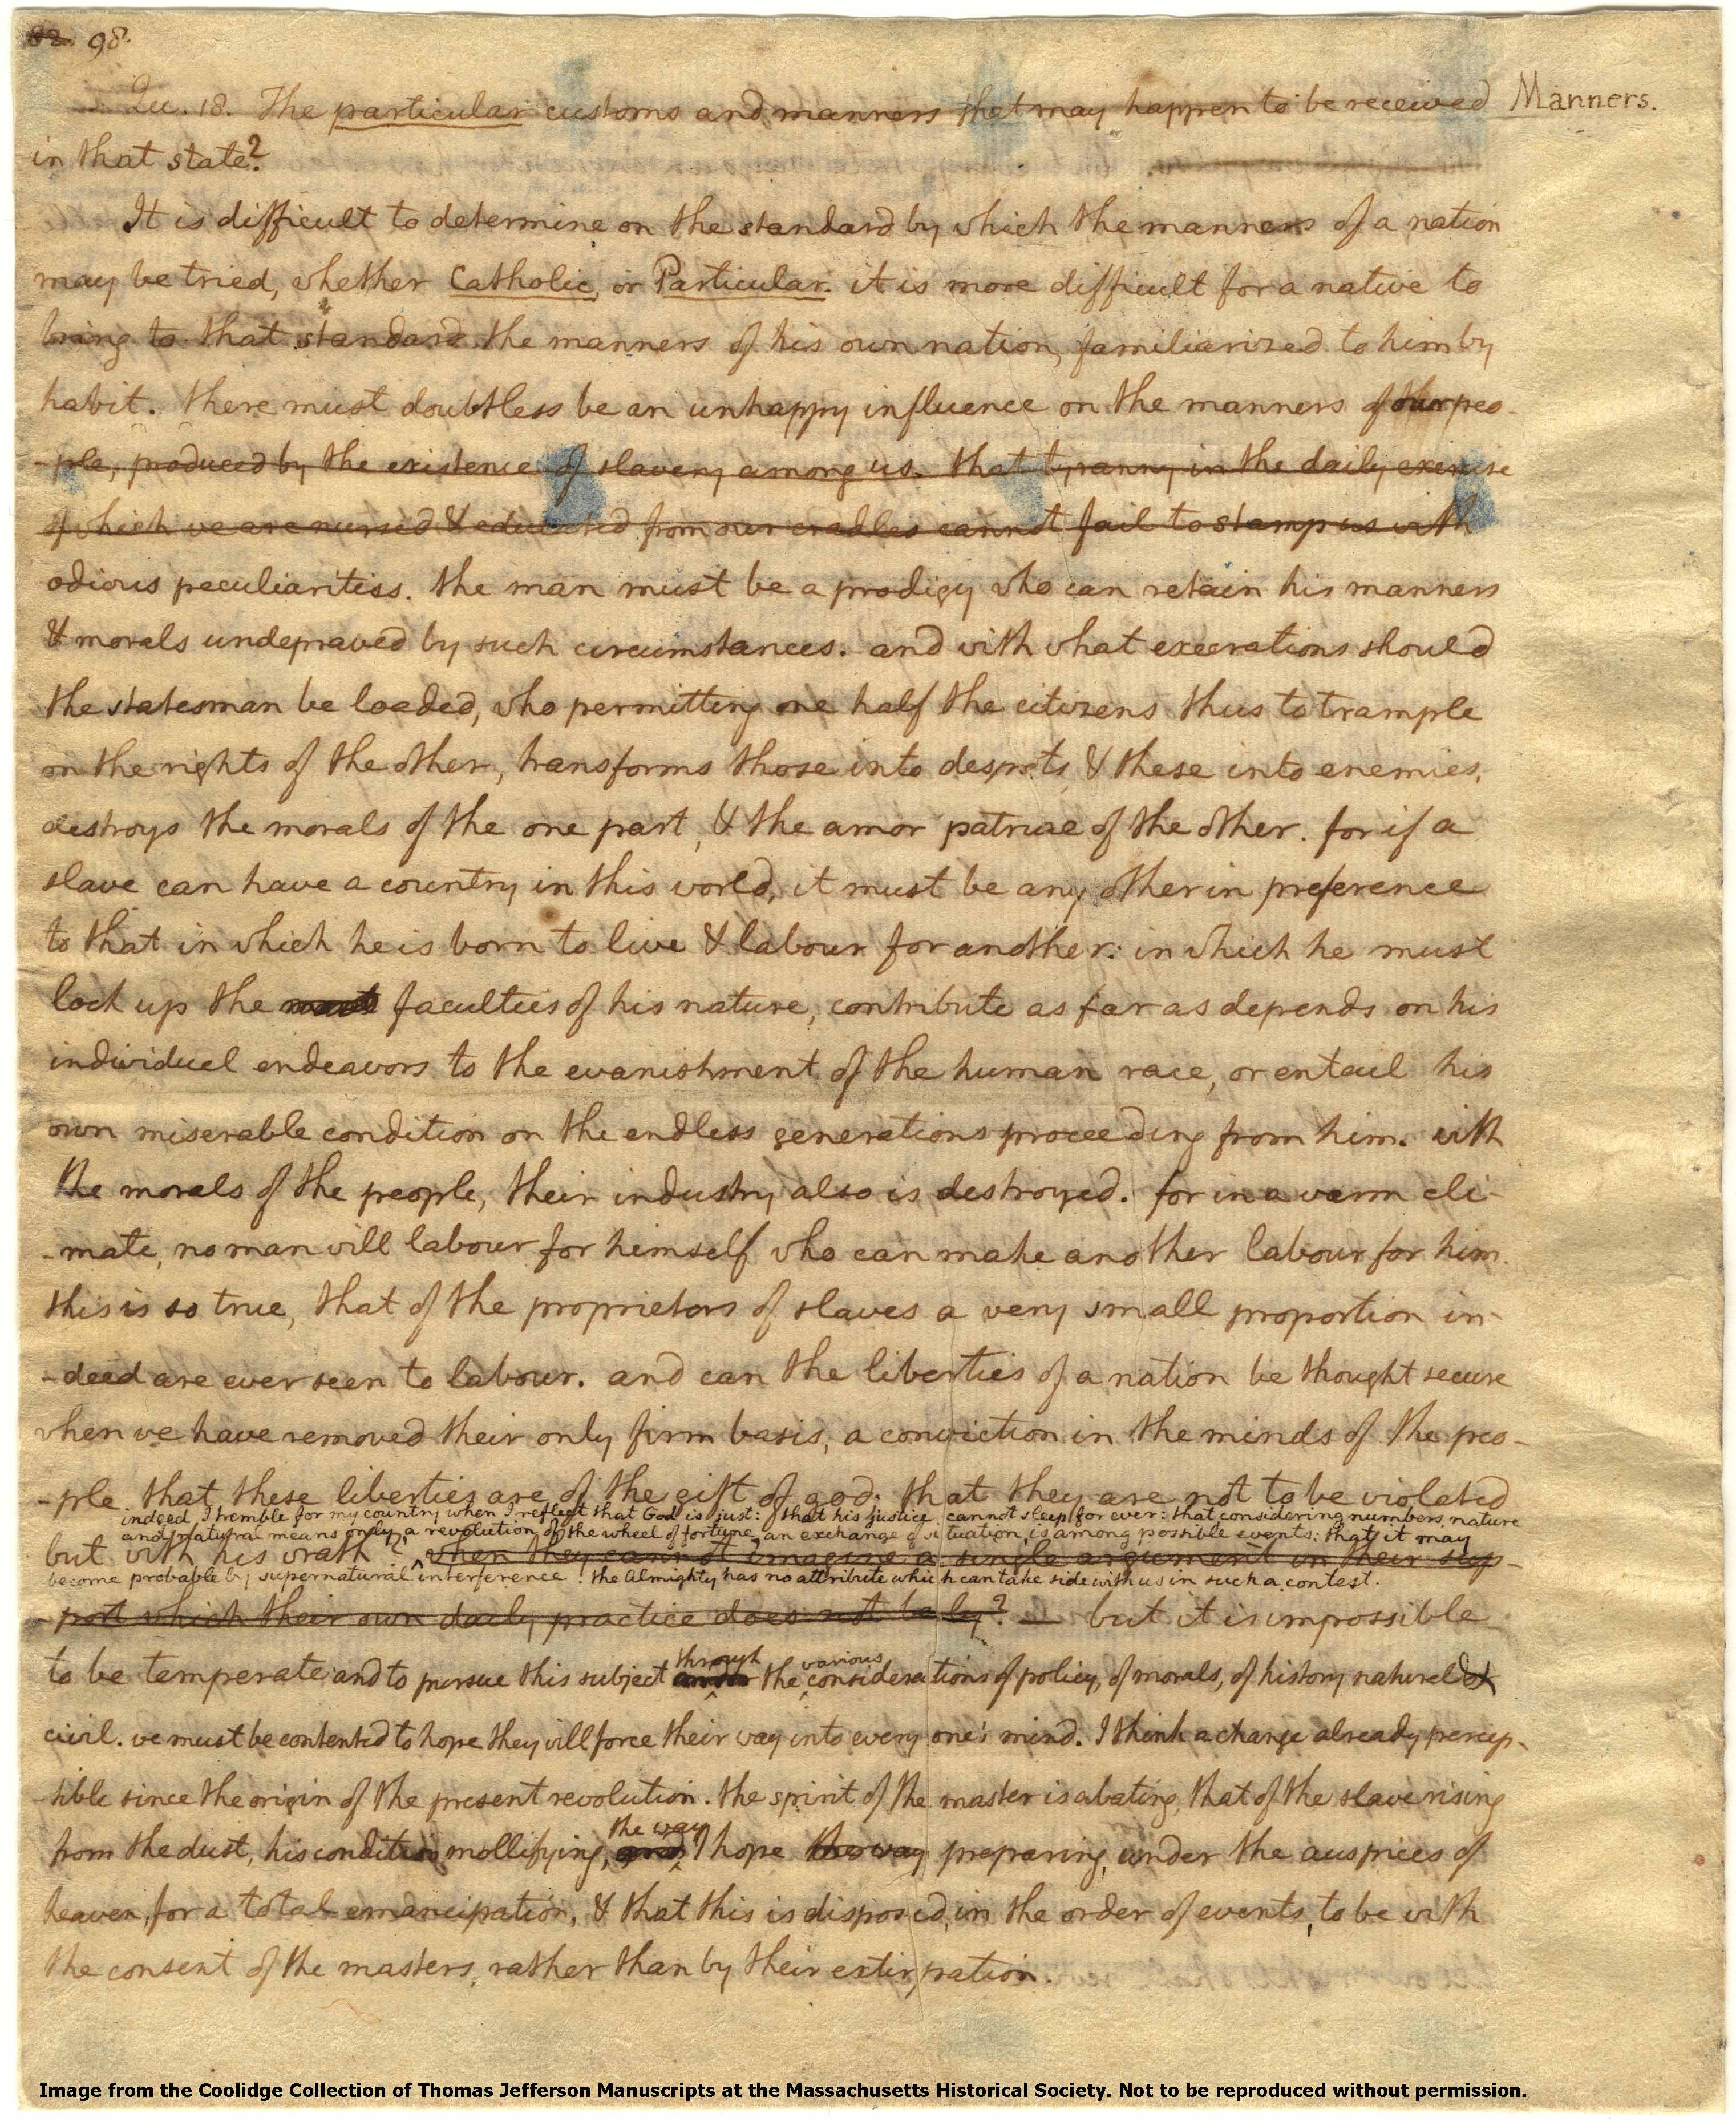 82. 98.
Qu. 18. The particular customs and manners that may happen to be received Manners.
in that state?
It is difficult to determine on the standard by which the manners of a nation
may be tried, whether Catholic, or Particular. it is more difficult for a native to
bring to that standard the manners of his own nation, familiarized to him by
habit. there must doubtless be an unhappy influence on the manners of our peo-
-ple, produced by the existence of slavery among us. that tyranny in the daily exercise
of which we are nursed & educated from our cradles cannot fail to stamp us with
odious peculiarities. the man must be a prodigy who can retain his manners
& morals undepraved by such circumstances. and with what execrations should
the statesman be loaded, who permitting one half the citizens thus to trample
on the rights of the other, transforms those into despots, & these into enemies,
destroys the morals of the one part, & the amor patriae of the other. for if a
slave can have a country in this world, it must be any other in preference
to that in which he is born to live & labour for another: in which he must
lock up the faculties of his nature, contribute as far as depends on his
individual endeavors to the evanishment of the human race, or entail his
own miserable condition on the endless generations proceeding from him. with
the morals of the people, their industry also is destroyed. for in a warm cli-
-mate, no man will labour for himself who can make another labour for him.
this is so true, that of the proprietors of slaves a very small proportion in-
-deed are ever seen to labour. and can the liberties of a nation be thought secure
when we have removed their only firm basis, a conviction in the minds of the peo-
-ple that these liberties are of the gift of god. that they are not to be violated
indeed I tremble for my country when I reflect that God is just: that his justice cannot sleep for ever: that considering numbers, nature
and natural means only, a revolution of the wheel of fortune, an exchange of situation, is among possible events: that it may
but with his wrath? when they cannot imagine a single argument in their sup-
become probable by supernatural interference! the Almighty has no attribute which can take side with us in such a contest.
-port which their own daily practice does not bely? — but it is impossible
through various
to be temperate and to pursue this subject under the considerations of policy, of morals, of history natural &
civil. we must be contented to hope they will force their way into every one's mind. I think a change already percep-
-tible since the origin of the present revolution. the spirit of the master is abating, that of the slave rising
the way
from the dust, his condition mollifying, and I hope the way preparing, under the auspices of
heaven, for a total emancipation, & that this is disposed, in the order of events, to be with
the consent of the masters, rather than by their extirpation.
Image from the Coolidge Collection of Thomas Jefferson Manuscripts at the Massachusetts Historical Society. Not to be reproduced without permission.